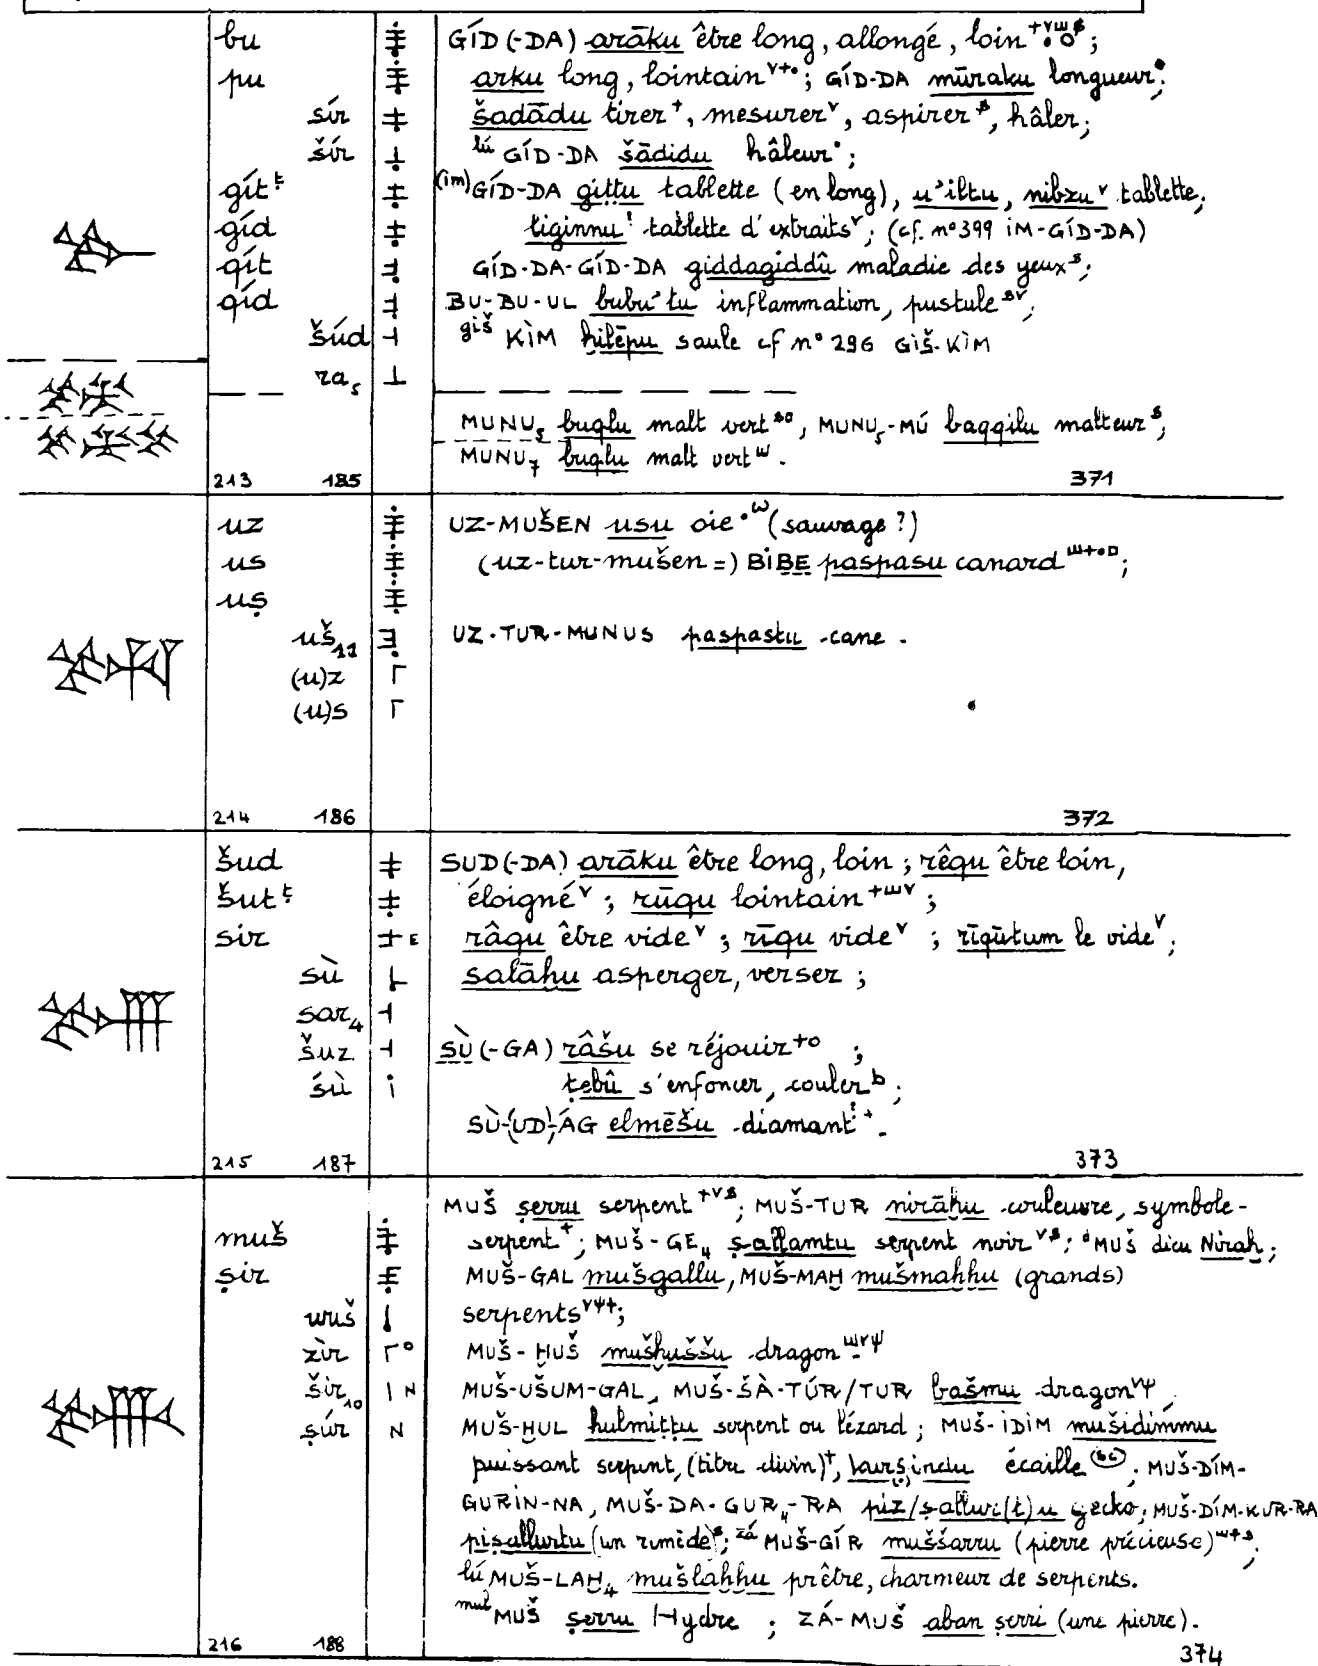 bu GÍD (-DA) arāku être long, allongé, loin ;
pu arku long, lointain ; GÍD-DA mūraku longueur ;
sír šadādu tirer, mesurer, aspirer, hâler ;
šír lú GÍD-DA šādidu hâleur ;
gít ṭ (im) GÍD-DA giṭṭu tablette (en long), u'iltu, nibzu tablette,
gíd liginnu ! tablette d'extraits ; (cf. n° 399 IM-GÍD-DA)
qít GÍD-DA-GÍD-DA giddagiddû maladie des yeux ;
qíd BU-BU-UL bubu'tu inflammation, pustule ;
šúd giš KÌM ḫilēpu saule cf n° 296 GIŠ-KÌM
ra₅
MUNU₅ buqlu malt vert, MUNU₅-MÚ baqqilu malteur ;
MUNU₇ buqlu malt vert .
213 185 371
uz UZ-MUŠEN usu oie (sauvage ?)
us (uz-tur-mušen =) BIBE paspasu canard ;
uṣ
uš₁₂ UZ-TUR-MUNUS paspastu cane .
(u)z
(u)s
214 186 372
šud SUD (-DA) arāku être long, loin ; rêqu être loin,
šut ṭ éloigné ; rūqu lointain ;
sir râqu être vide ; rīqu vide ; rīqūtum le vide ;
sù salāḫu asperger, verser ;
sar₄
šuz SÙ (-GA) râšu se réjouir ;
śù ṭebû s'enfoncer, couler ;
SÙ-(UD)-ÁG elmēšu diamant .
215 187 373
MUŠ ṣerru serpent ; MUŠ-TUR nirāḫu couleuvre, symbole-
muš serpent ; MUŠ-GE₄ ṣallamtu serpent noir ; ᵈMUŠ dieu Niraḫ ;
ṣir MUŠ-GAL mušgallu, MUŠ-MAḪ mušmaḫḫu (grands)
wuš serpents ;
zìr MUŠ-ḪUŠ mušḫuššu dragon
šir₁₀ MUŠ-UŠUM-GAL, MUŠ-ŠÀ-TÙR/TUR bašmu dragon ,
ṣúr MUŠ-ḪUL ḫulmiṭṭu serpent ou lézard ; MUŠ-IDIM mušidimmu
puissant serpent, (titre divin), kurṣindu écaille ; MUŠ-DÍM-
GURIN-NA, MUŠ-DA-GUR₄-RA piz/ṣallur(t)u gecko ; MUŠ-DÍM-KUR-RA
piṣallurtu (un remède) ; zá MUŠ-GÍR muššarru (pierre précieuse) ;
lú MUŠ-LAḪ₄ mušlaḫḫu prêtre, charmeur de serpents.
mul MUŠ ṣerru Hydre ; ZÁ-MUŠ aban ṣerri (une pierre).
216 188 374